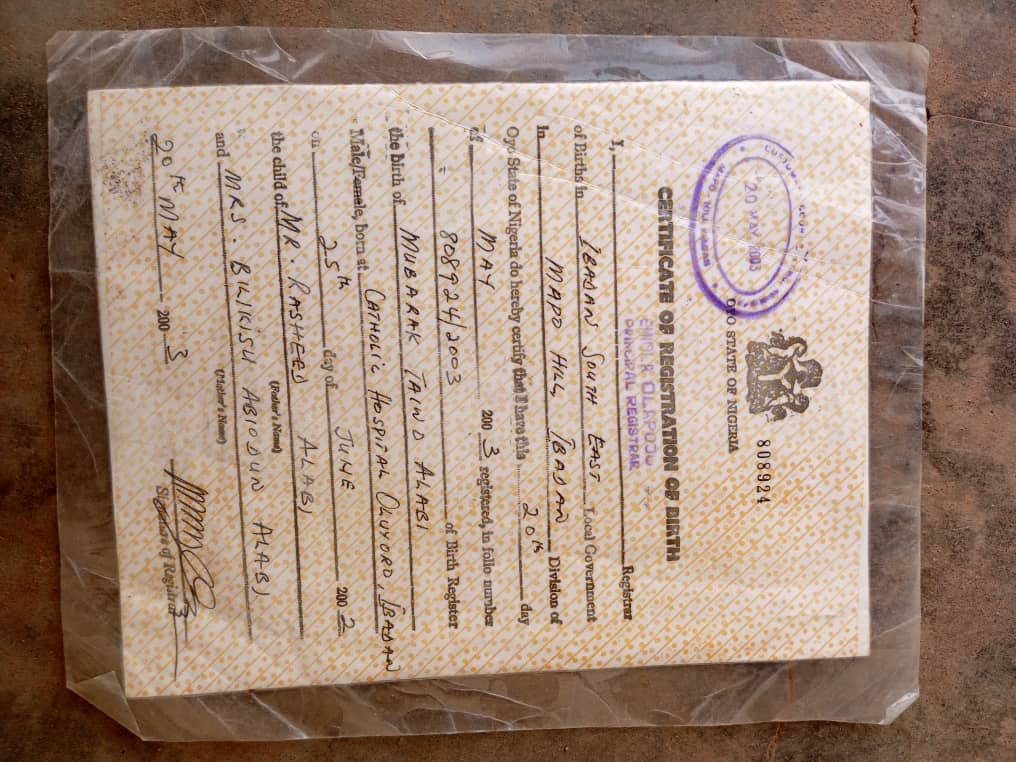 808924
OYO STATE OF NIGERIA
20 MAY 2003
CERTIFICATE OF REGISTRATION OF BIRTH
PRINCIPAL REGISTRAR
I, Registrar
of Births in IBADAN SOUTH EAST Local Government
In MAPO HILL, IBADAN Division of
Oyo State of Nigeria do hereby certify that I have this 20th day
of MAY 200 3 registered, in folio number
808924/2003 of Birth Register
the birth of MUBARAK TAIWO ALABI
Male/Female, born at CATHOLIC HOSPITAL OLUYORO, IBADAN
on 25th day of JUNE 200 2
the child of MR. RASHEED ALABI
(Father's Name)
and MRS. BILIKISU ABIODUN ALABI
(Mother's Name)
20th MAY 200 3
Signature of Registrar